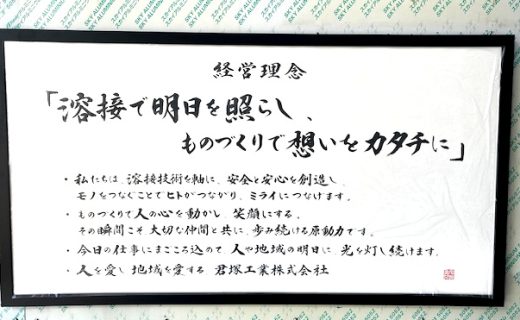 経営理念
「溶接で明日を照らし、
ものづくりで想いをカタチに」
・私たちは、溶接技術を軸に、安全と安心を創造し、
モノをつなぐことでヒトがつながり、ミライにつなげます。
・ものづくりで人の心を動かし、笑顔にする。
その瞬間こそ大切な仲間と共に、歩み続ける原動力です。
・今日の仕事にまごころ込めて、人や地域の明日に光を灯し続けます。
・人を愛し地域を愛する 君塚工業株式会社